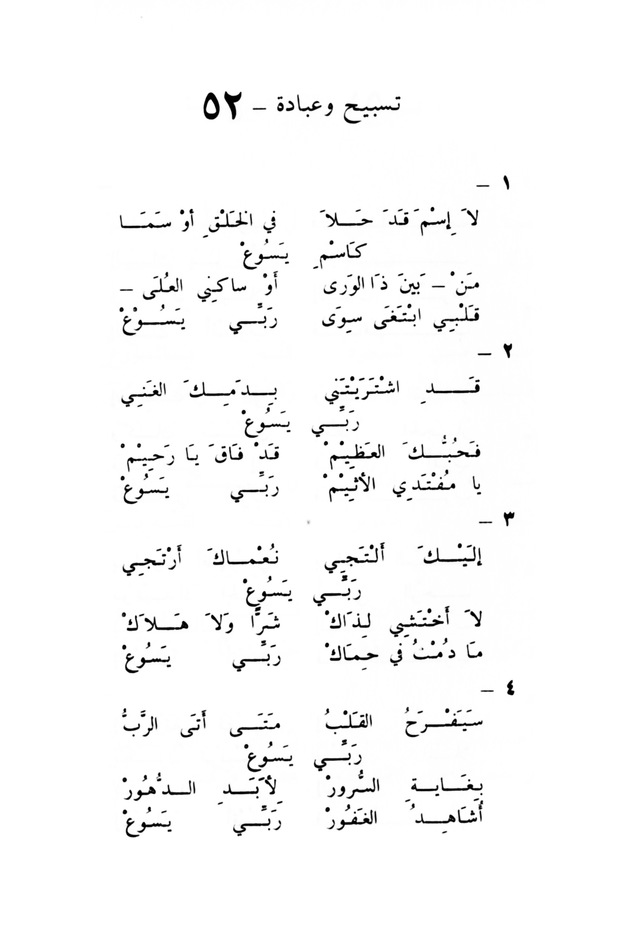 ٥٢ – تسبيح وعبادة
١ –
لاَ إِسْمَ قَدَ حَـــلاَ في الخَلْقِ أوْ سَمَـــا
كَاسْمِ يَسُوعْ
مَنْ – بَينَ ذَا الوَرى أوْ ساكِنِي العُلَى –
قَلْبِي ابْتَغَى سِوَى رَبِّـــي يَســـُوعْ
٢ –
قَـــدِ اشْتَرَيْتَني بِـدَمِـكَ الغَنِي
رَبِّـي يَسُوعْ
فَحُبُّـكَ العَظِيْمْ قَدْ فَاقَ يَا رَحِيْمْ
يا مُفْتَدِي الأثِيْمْ رَبِّـي يَسُوعْ
٣ –
إلَيْـكَ أَلْتَجِي نُعْمـاكَ أرْتَجي
رَبِّـي يَسُوعْ
لاَ أَخْتَشِي لِذَاكْ شَرًّا وَلاَ هَـلاَكْ
مَا دُمْتُ في حِماكْ رَبِّـي يَسُوعْ
٤ –
سَيَفْـرَحُ القَلْبُ مَتَـى أتَى الرَّبُّ
رَبِّـي يَسُوعْ
بِغَـايـةِ السُّرورْ لِأَبَـدِ الـدُّهُورْ
أُشَاهِـدُ الغَفُورْ رَبِّـي يَسُوعْ